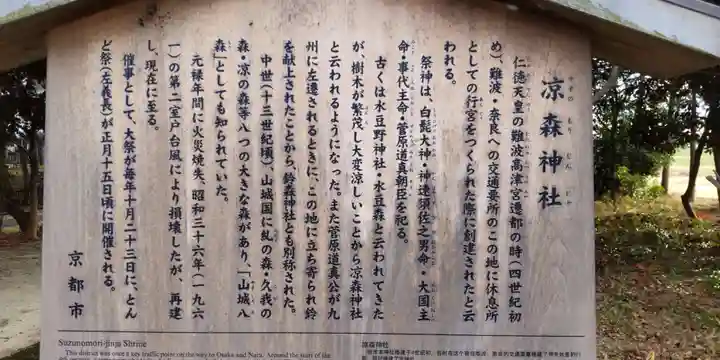 凉森神社
すずの もり じん じゃ
仁徳天皇の難波高津宮遷都の時(四世紀初
め)、難波・奈良への交通要所のこの地に休息所
としての行宮をつくられた際に創建されたと云
われる。
祭神は、白髭大神・神速須佐之男命・大国主
命・事代主命・菅原道真朝臣を祀る。
古くは水豆野神社・水豆森と云われてきた
が、樹木が繁茂し大変涼しいことから凉森神社
と云われるようになった。また菅原道真公が九
州に左遷されるときに、この地に立ち寄られ鈴
を献上されたことから、鈴森神社とも別称された。
中世(十三世紀頃)、山城国に糺の森・久我の
森・凉の森等八つの大きな森があり、「山城八
森」としても知られていた。
元禄年間に火災焼失、昭和三十六年(一九六
一)の第二室戸台風により損壊したが、再建
し、現在に至る。
催事として、大祭が毎年十月二十三日に、とん
ど祭(左義長)が正月十五日頃に開催される。
京都市
Suzunomori-jinja Shrine
This district was once a key traffic point on the way to Osaka and Nara. Around the start of the
凉森神社